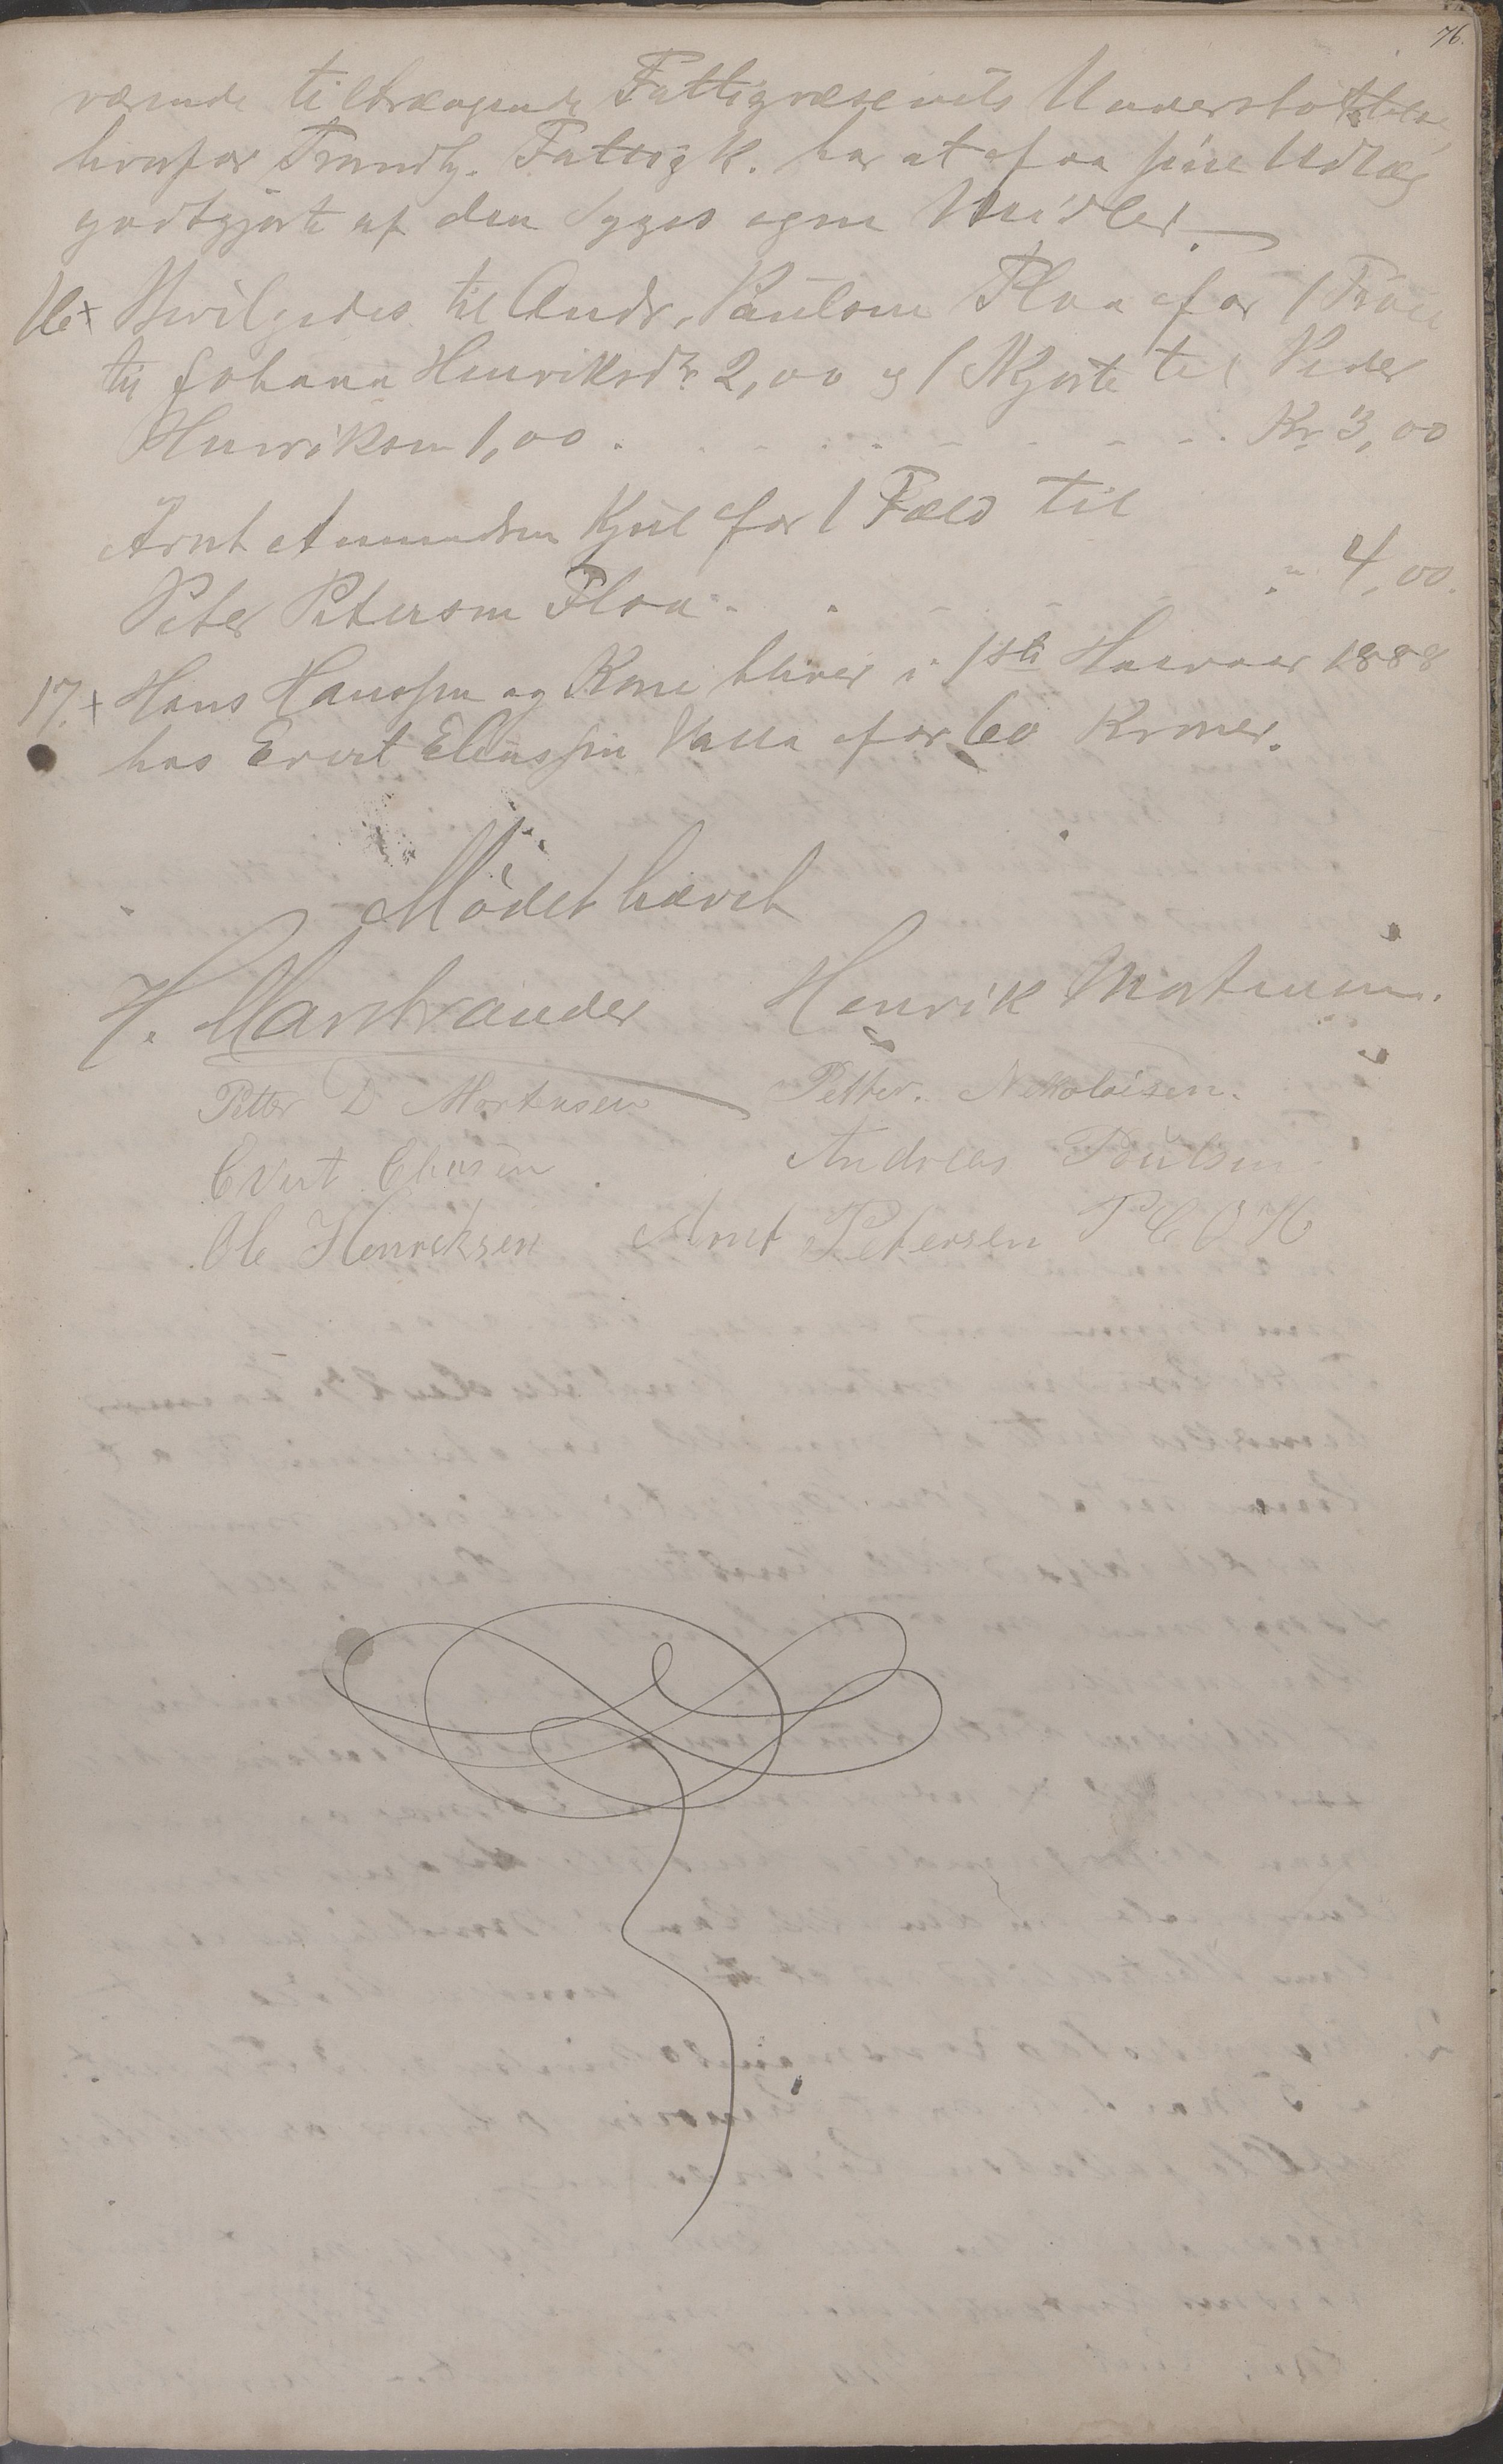 76.
værende tiltrængende Fattigvæsenets Understøttelse,
hvorfor Trondhj. Fattigk. har at faa sine Udlæg
godtgjort af den Syges egne Midler.
16 x Bevilgedes til Andr. Paulsen Floa for 1 Trøie
til Johana Henriksdr. 2,00 og 1 Skjorte til Peder
Henriksen 1,00 . . . . . . . Kr. 3,00
Arnt Amundsen Kjul for 1 Fæld til
Peter Petersen Floa . . . . . " 4,00.
17. x Hans Hanssen og Kone bliver i 1ste Halvaar 1888
hos Evert Eliassen Valla for 60 Kroner.
Mødet hævet
H. Marstrander Henrik Mortensen.
Petter D Mortensen Petter. Nikolaisen.
Evert Eliasen Andreas Poulsen.
Ole Henriksen Arnt Petersen P E Ø H